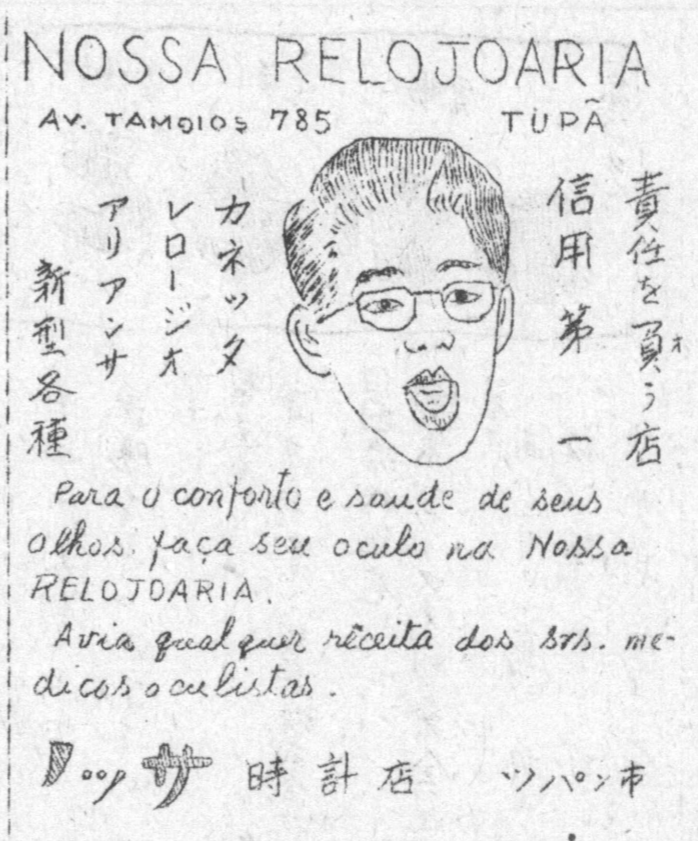 NOSSA RELOJOARIA
AV. TAMOIOS 785
TUPÃ
責任を負う店
オ
信用第一
カネッタ
レロージオ
アリアンサ
新型各種
Para o conforto e saude de seus
olhos. faça seu oculo na Nossa
RELOJOARIA.
Avia qualquer receita dos srs. me-
dicos oculistas.
ノッサ 時計店 ツパン市